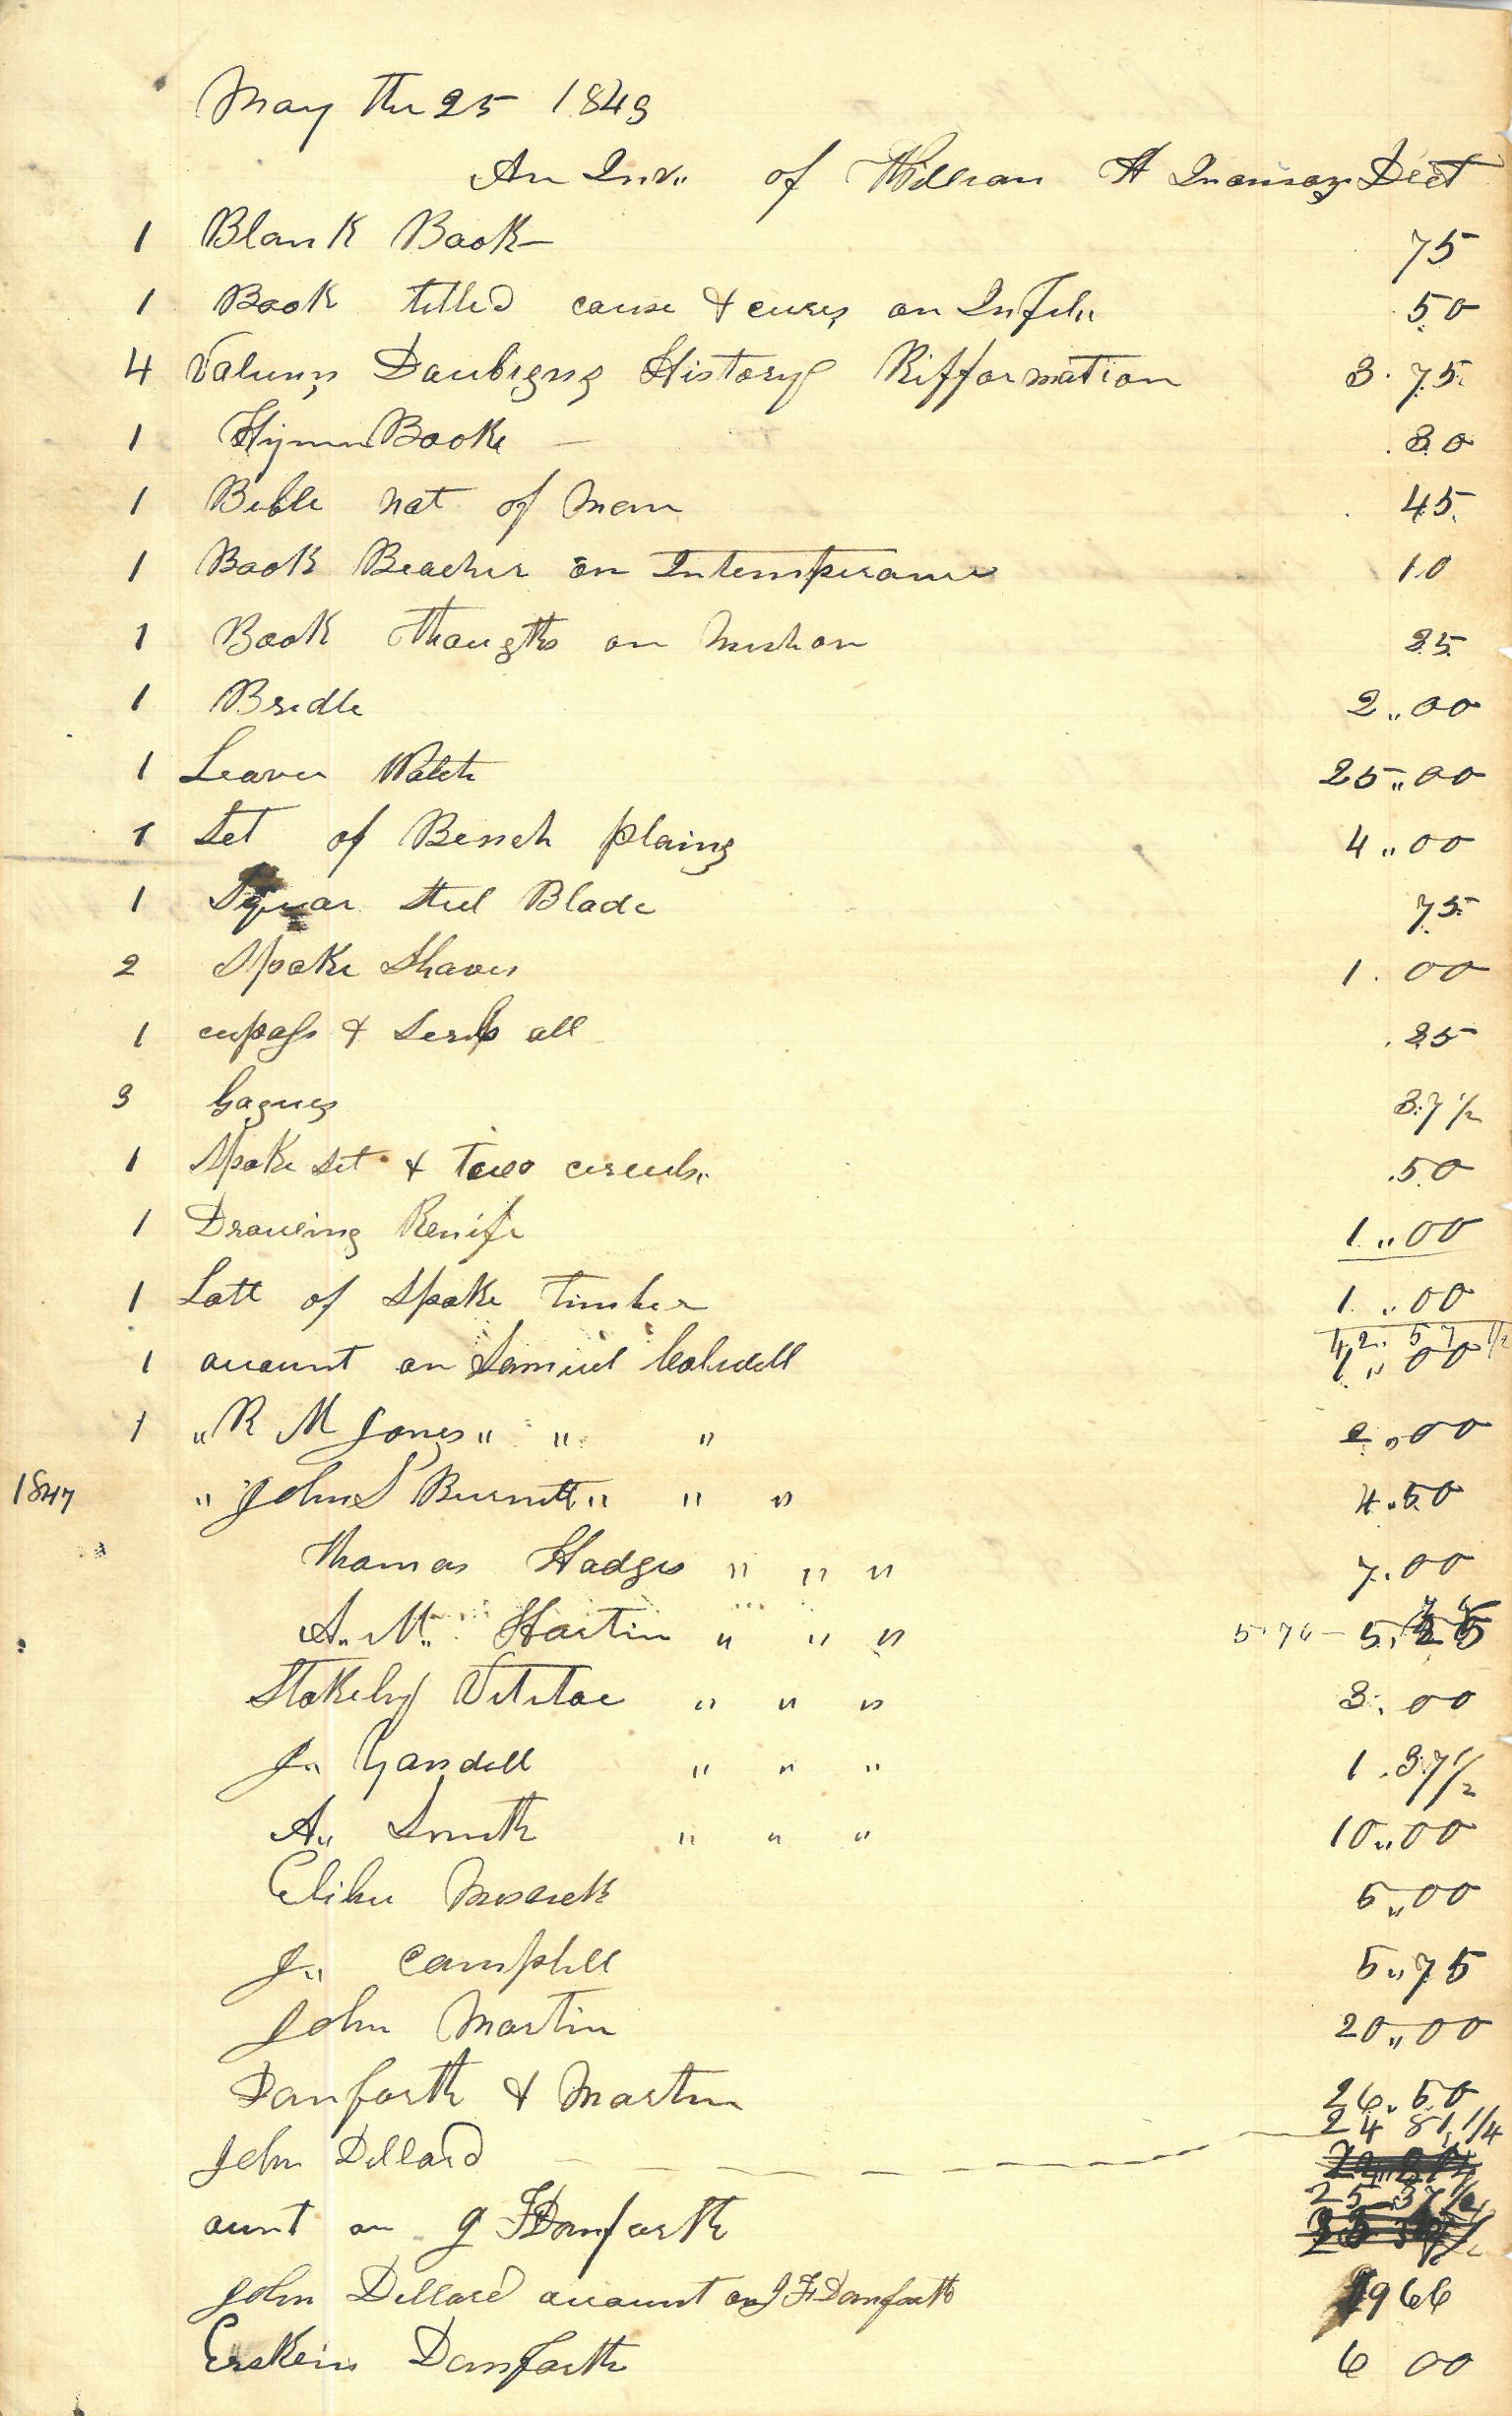 May the 25 1849
An Inv,, of William A Dect
1 Blank Book 75
1 Book titled cause & cures on Infidl,, 50
4 Valums Daubigns History Rifformation 3.75
1 Hymn Booke 30
1 Bible nat of Mem 45
1 Book Beacher on Intemperance 10
1 Book Thougths on Mishon 25
1 Bridle 2,,00
1 Leaver Watch 25,,00
1 Set of Bench plaing 4,,00
1 Squar Steel Blade 75
2 Spoke Shaves 1.00
1 cupass & Scrib all .25
3 Gagues 37 1/2
1 Spoke Set & two .50
1 Drawing Kenife 1,,00
1 Lott of Spoke timber 1,,00
42,,57 1/2
1 account on Samuel Colwell 1,,00
1 ,, R M Jones ,, ,, ,, 2,,00
1847 ,, John S Burnett ,, ,, ,, 4.50
Thomas Hadges ,, ,, ,, 7.00
A,, M,, Hartin ,, ,, ,, 5.76 - 5.
Stokely Vititoe ,, ,, ,, 3.00
J,, Yandell ,, ,, ,, 1.37 1/2
A,, Smith ,, ,, ,, 10,,00
Elihu 5,,00
J,, Camphell 5,,75
John Martin 20,,00
Danforth & Martin 26.50
John Dillard 24 81 1/4
aunt on J F Danforth 25.37 1/2
John Dillard account on J F Danforth 966
Erskin Danforth 6 00